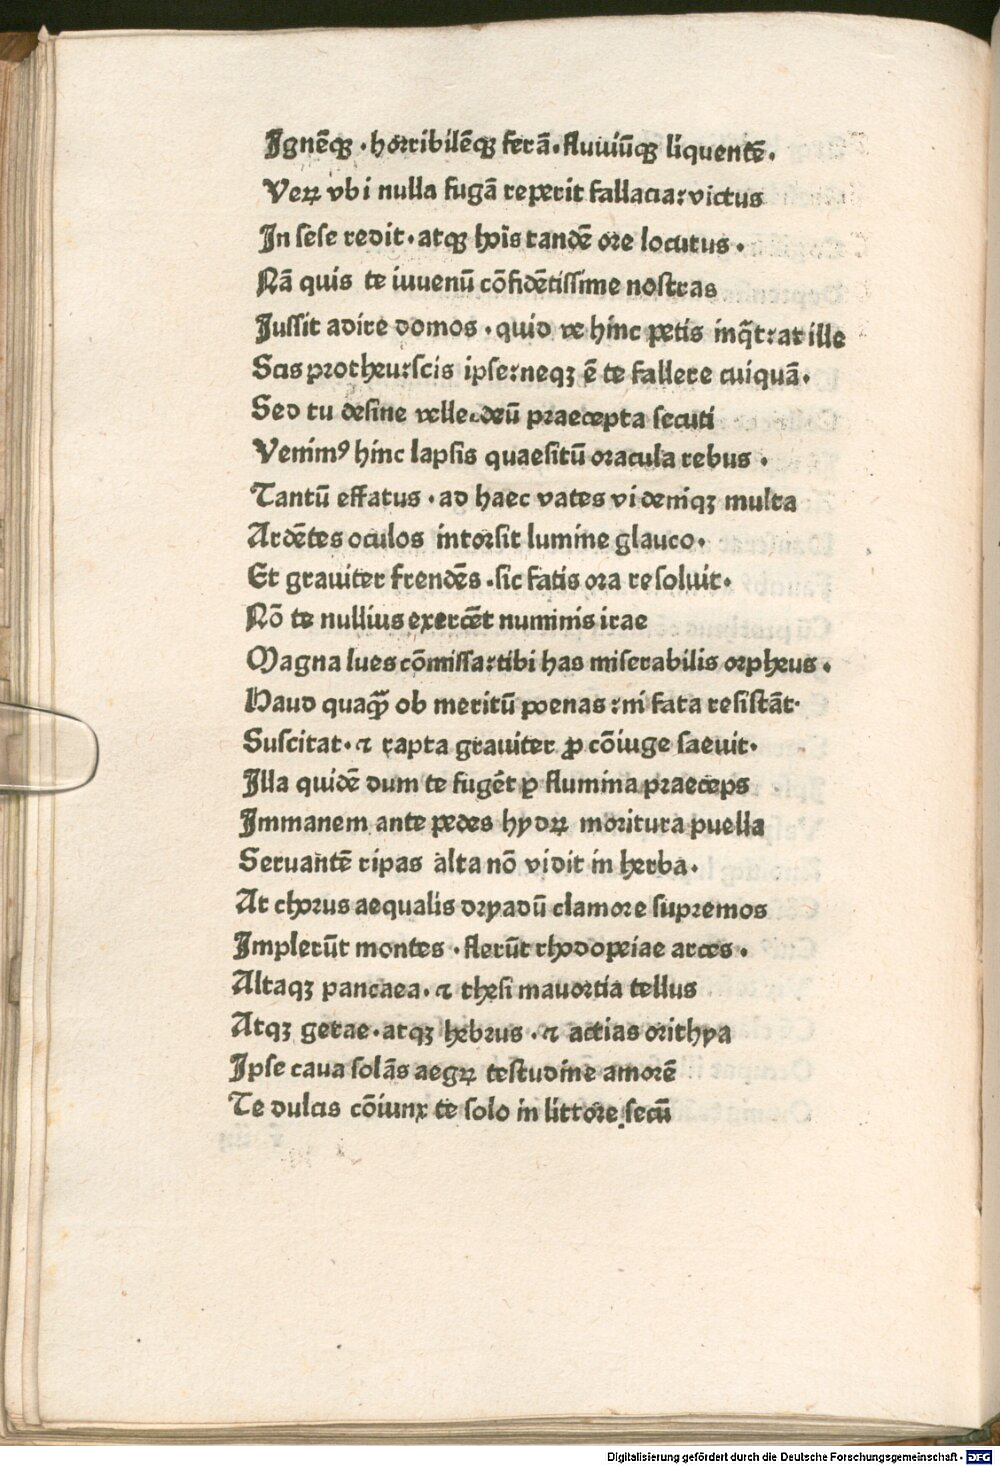 Ignēqꝫ · horribilēqꝫ ferā · fluuiūqꝫ liquentē .
Veꝝ vbi nulla fugā reperit fallacia : victus
In sese redit · atqꝫ hoīs tandē ore locutus .
Nā quis te iuuenū cōfidētissime nostras
Jussit adire domos · quid ve hinc petis inq̄t : at ille
Scis protheu : scis ipse : neqꝫ ē te fallere cuiquā .
Sed tu desine velle . deū praecepta secuti
Venimꝰ hinc lapsis quaesitū oracula rebus .
Tantū effatus · ad haec vates vi deniqꝫ multa
Ardētes oculos intorsit lumine glauco .
Et grauiter frendēs . sic fatis ora resoluit .
Nō te nullius exercēt numinis irae
Magna lues cōmissa : tibi has miserabilis orpheus .
Haud quaqꝫ̄ ob meritū poenas : ni fata resistāt .
Suscitat . ⁊ rapta grauiter ꝓ cōiuge saeuit .
Illa quidē dum te fugēt ꝑ flumina praeceps
Immanem ante pedes hydꝝ moritura puella
Seruantē ripas alta nō vidit in herba .
At chorus aequalis dryadū clamore supremos
Implerūt montes . flerūt rhodopeiae arces .
Altaqꝫ pancaea . ⁊ rhesi mauortia tellus
Atqꝫ getae . atqꝫ hebrus . ⁊ actias orithya
Ipse caua solās aegꝝ testudine amorē
Te dulcis cōiunx te solo in littore secū
Digitalisierung gefördert durch die Deutsche Forschungsgemeinschaft · DFG